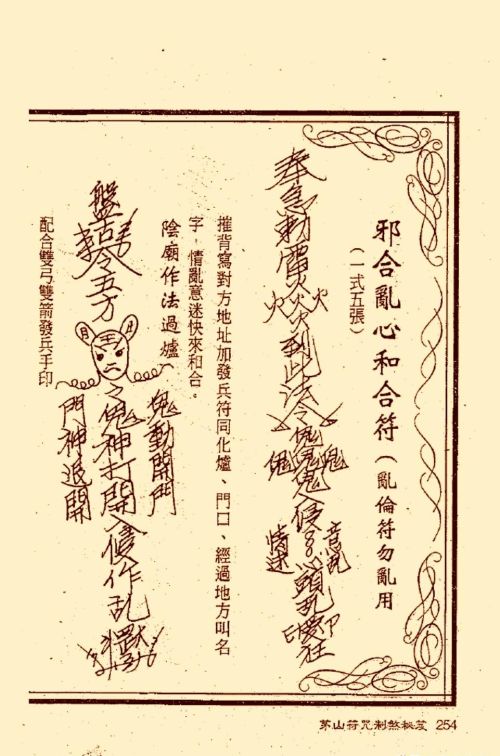 邪合亂心和合符(亂倫符勿亂用
(一式五張)
奉急勅雷火焱火到此法令
鬼鬼鬼鬼入侵
音乱
情迷
頭乱
摧背寫對方地址加發兵符同化爐、門口、經過地方叫名
字,情亂意迷快來和合。
陰廟作法過爐
鬼動開門
盤古
令五方
月
王
月
令鬼神打開入侵作乱
門神退開
配合雙弓雙箭發兵手印
茅山符咒制煞秘笈 254